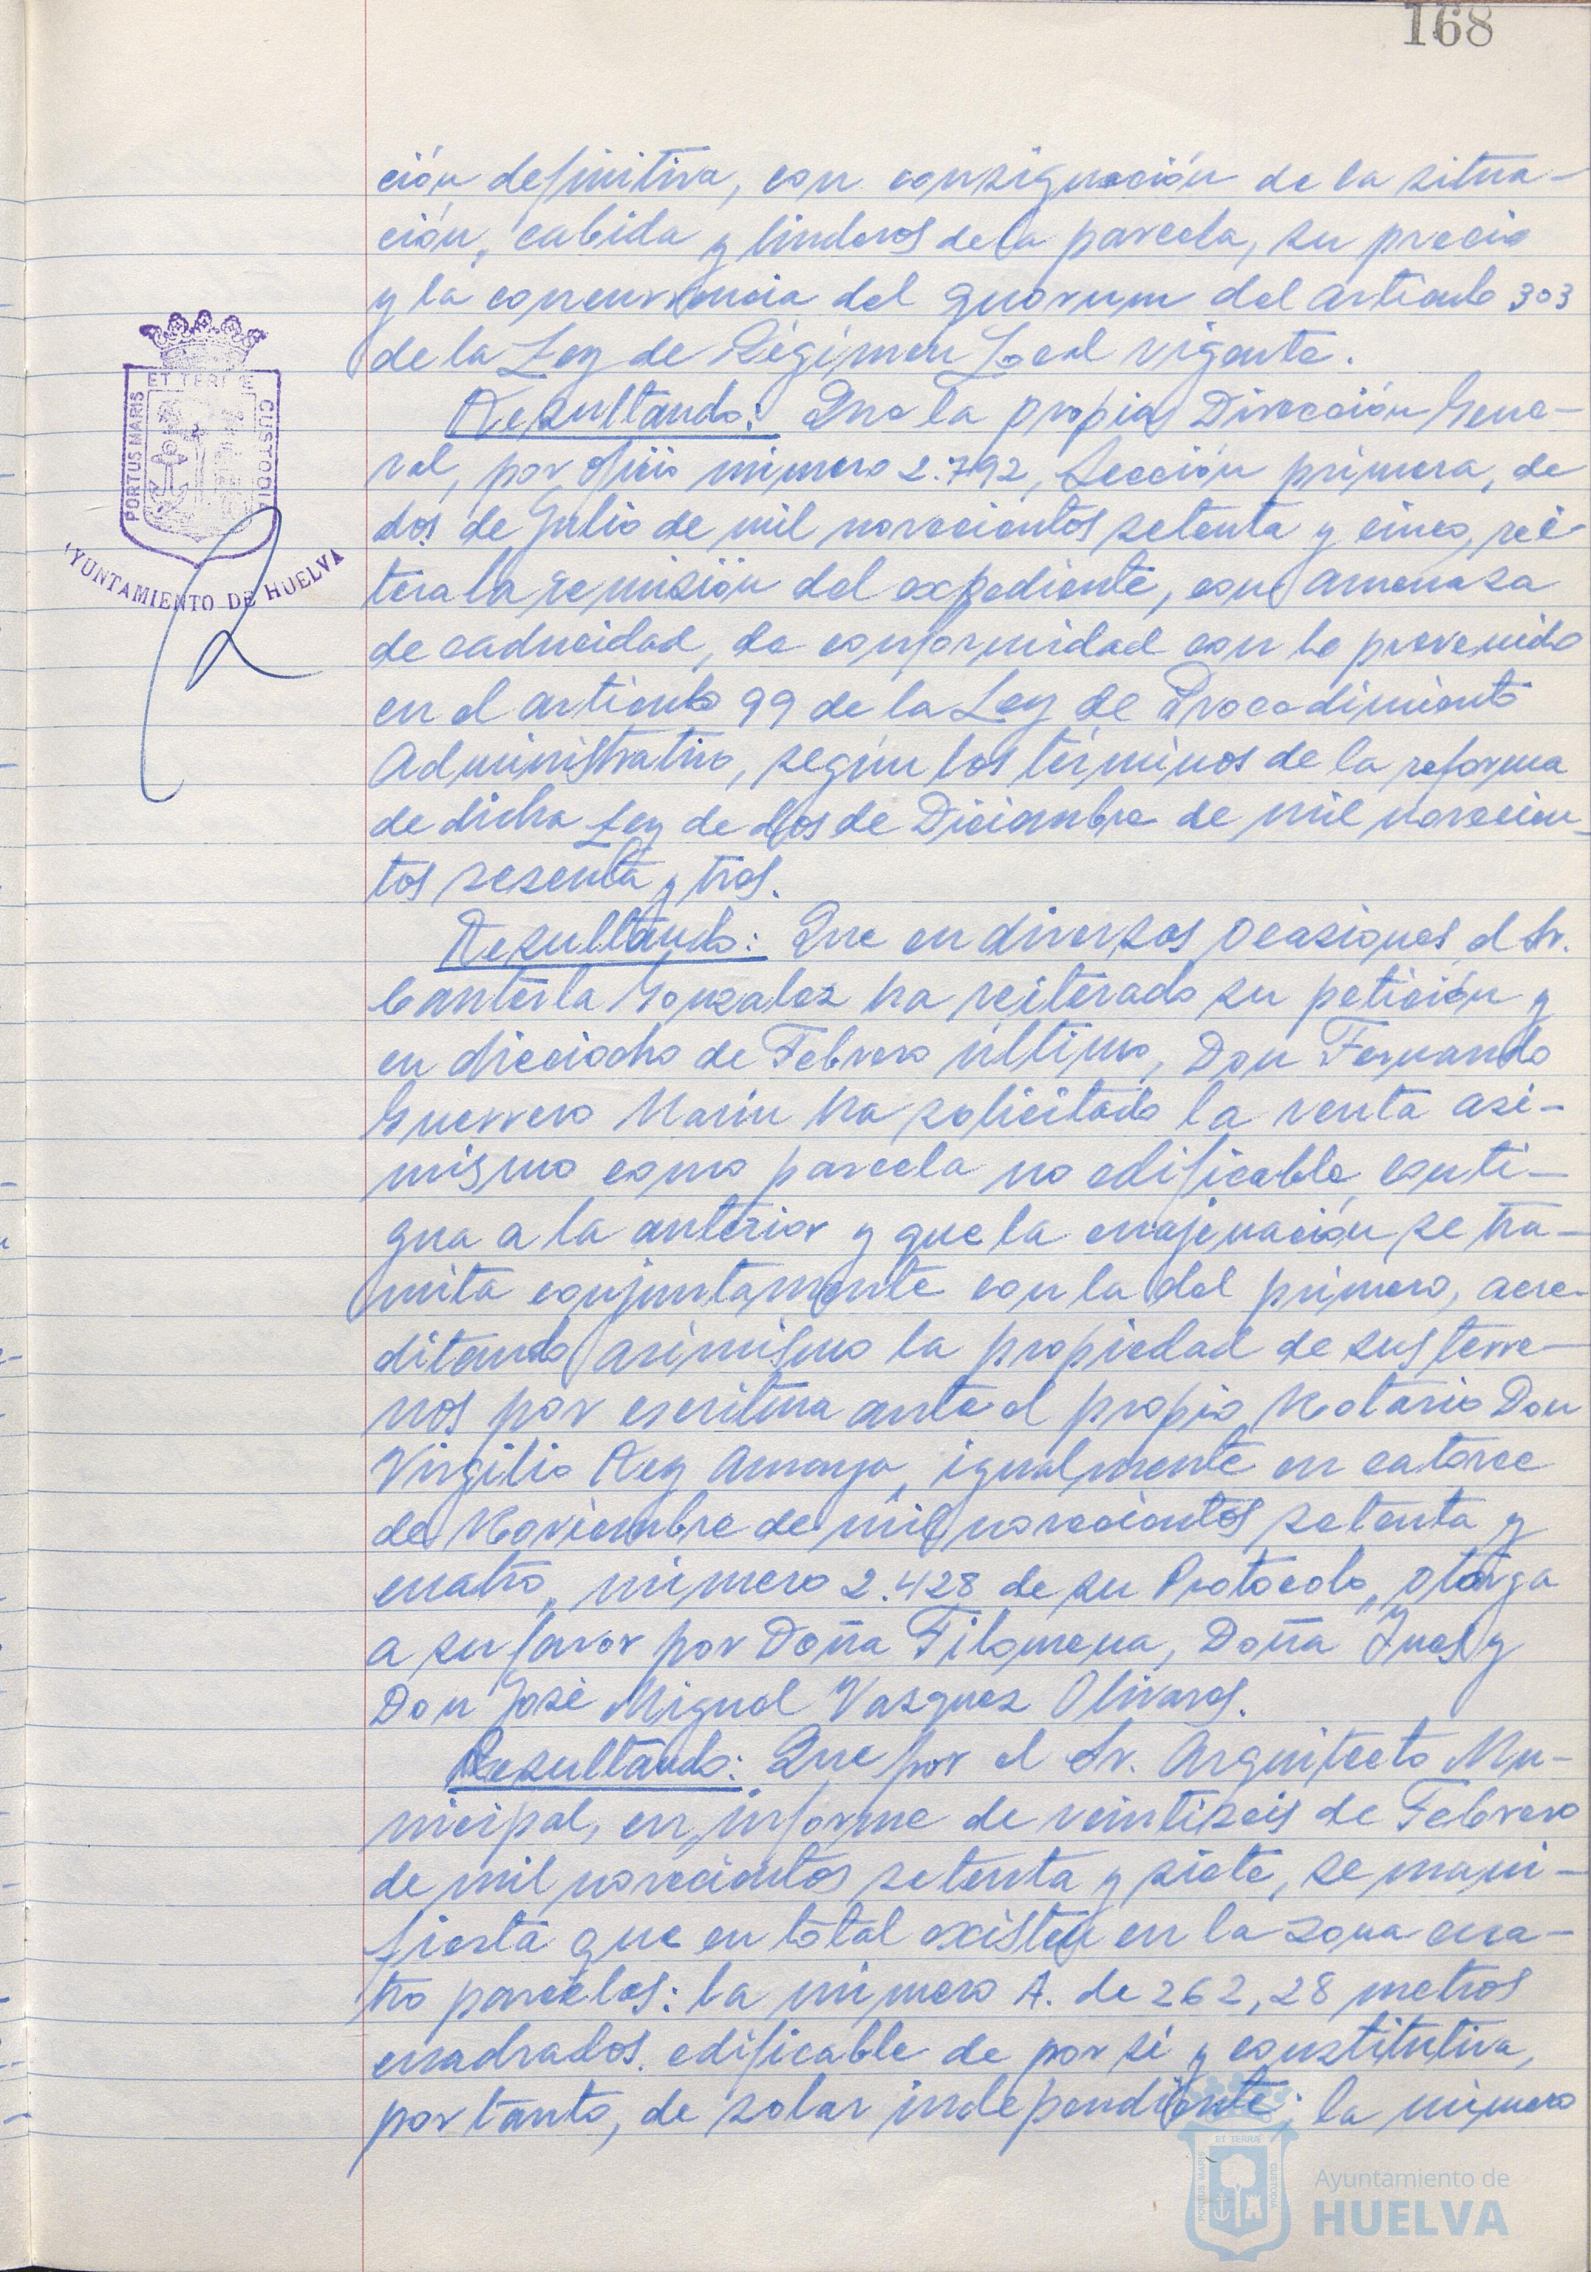 168
ción definitiva, con consignación de la situa-
ción, cabida y linderos de la parcela, su precio
y la concurrencia del quorum del articulo 303
de la Ley de Régimen Local vigente.
Resultando: Que la propia Dirección Gene-
ral, por oficio número 2.792, Sección primera, de
dos de Julio de mil novecientos setenta y cinco, rei-
tera la remisión del expediente, con amenaza
de caducidad, de conformidad con lo prevenido
en el articulo 99 de la Ley de Procedimiento
Administrativo, según los términos de la reforma
de dicha Ley de dos de Diciembre de mil novecien-
tos sesenta y tres.
Resultando: Que en diversas ocasiones el Sr.
Canterla Gonzalez ha reiterado su petición y
en dieciocho de Febrero último, Don Fernando
Guerrero Marin ha solicitado la venta asi-
mismo como parcela no edificable conti-
gua a la anterior y que la enajenación se tra-
mita conjuntamente con la del primero, acre-
ditando asimismo la propiedad de sus terre-
nos por escritura ante el propio Notario Don
Virgilio Rey, igualmente en catorce
de Noviembre de mil novecientos setenta y
cuatro, número 2.428 de su Protocolo, otorga
a su favor por Doña Filomena, Doña Ines y
Don José Miguel Vazquez Olivares.
Resultando: Que por el Sr. Arquitecto Mu-
nicipal, en informe de veintiseis de Febrero
de mil novecientos setenta y siete, se mani-
fiesta que en total existen en la zona cua-
tro parcelas: la número A. de 262,28 metros
cuadrados edificable de por si y constitutiva,
por tanto, de solar independiente; la número
ET TERRAE
PORTUS MARIS
CUSTODIA
AYUNTAMIENTO DE HUELVA
ET TERRA
PORTUS MARIS
CUSTODIA
Ayuntamiento de
HUELVA